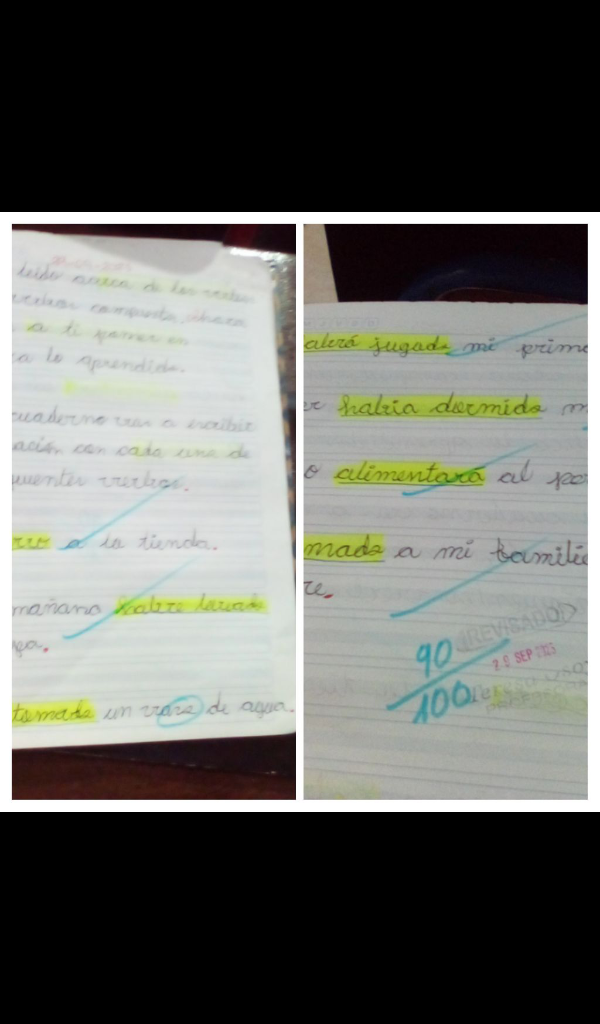 leído acerca de los verbos
verbos compuesto, ahora
a ti poner en
a lo aprendido.
cuaderno vas a escribir
ación con cada uno de
uientes verbos.
rro a la tienda.
mañana habre lavado
pa.
tomado un vaso de agua.
abrá jugado mi primo
r habia dormido m
o alimentará al pe
mado a mi familia
re.
90
100
REVISADO
29 SEP